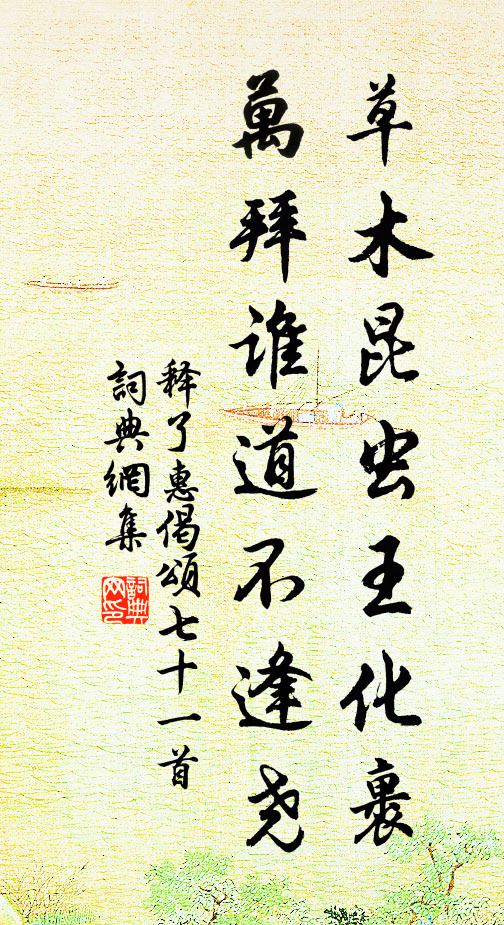 草木昆虫王化裹
萬拜誰道不逢尧
释了惠偈頌七十一首
詞典網集
詞典网印